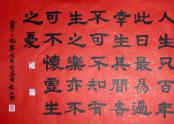 人生只百年
此日最易過
幸生其間者
不可不知有
生之樂亦不
可不懷虛生
之憂